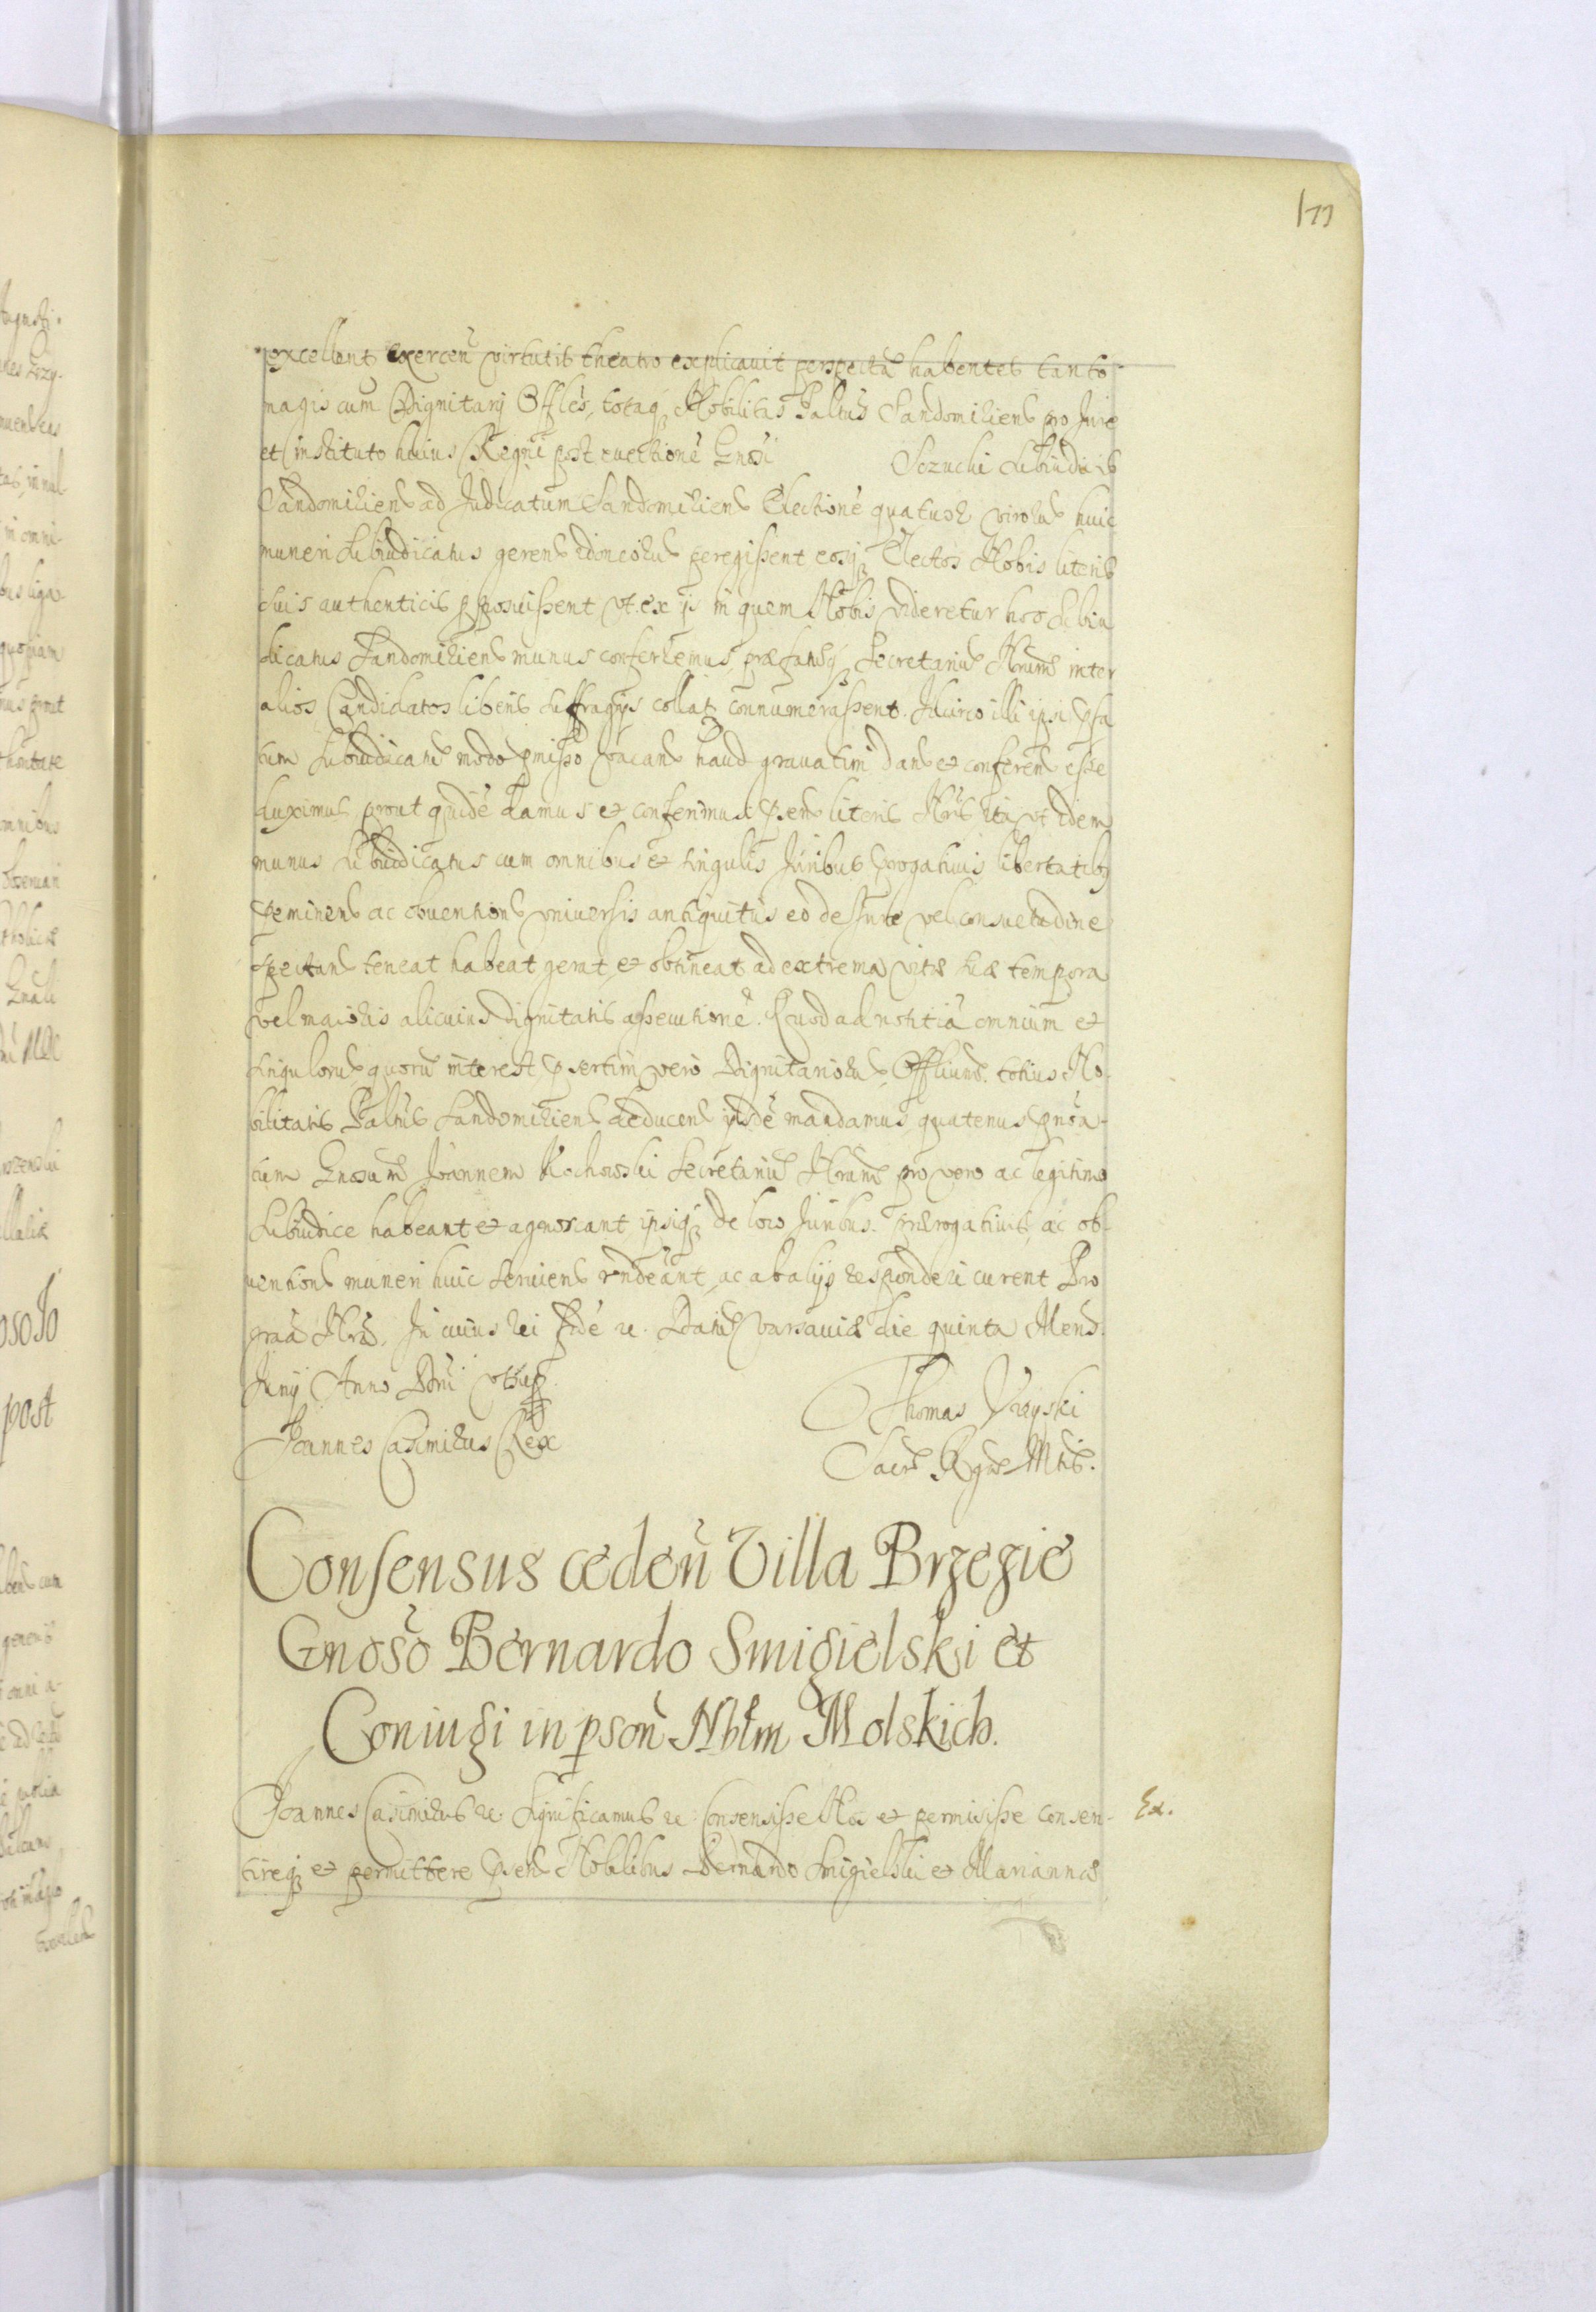 177
excellent exercen virtutis theatro explicavit perspecta habentes tanto
magis cum Dignitarij Offles, totaq Nobilitas Paltus Sandomiriens pro Jure
et instituto huius Regni post evectione Gnosi Subiudicis
Sandomiriens ad Judicatum Sandomiriens Electione quatuor virorum huic
muneri Subiudicatus gerens idoneorum peregissent eosq Electos Nobis literis
suis authenticis pposuissent vt ex ijs in quem Nobis videretur hoc Subiu
dicatus Sandomiriens munus conferremus, præfatusq Secretarius Nrum inter
alios Candidatos liberis suffragijs collatis connumerassent. Idcirco illi ipsi pfa
tum Subiudicatus modo pmisso vacans haud gravatim dans et conferens esse
duximus prout quide damus et conferimus psen literis Nris ita vt idem
munus Subiudicatus cum omnibus et singulis Juribus progativis libertatibq
peminens ac obventions vniversis antiquitus eo de Jure vel consuetudine
spectans teneat habeat gerat et obtineat ad extrema vitæ suæ tempora
vel maioris alicuius dignitatis assecutione. Quod ad notitia omnium et
singulorum quoru interest psertim vero Dignitariorum, Offlium totius No
bilitatis Paltus Sandomiriens deducens ijsde mandamus quatenus pnoia
tum Gnosum Joannem Kochowski Secretarium Nrum pro vero ac legitimo
Subiudice habeant et agnoscant ipsiq de loco Juribus prærogativis ac ob
ventions muneri huic serviens rndeant, ac ab alijs responderi curent Pro
graa Nra. In cuius rei fide &. Datus Varsaviæ die quinta Mens.
Junij Anno Dni vtsup
Thomas Uieyski
Joannes Casimirus Rex
Sacræ Rgiæ Mtis.
Consensus ceden Villa Brzezie
Gnoso Bernardo Smigielski et
Coniugi in pson Nblm Molskich.
Joannes Casimirus &. Significamus &. Consensisse Nos et permisisse consen-
Ex.
tireq et permittere psen Nobilibus Bernardo Smigielski et Mariannæ